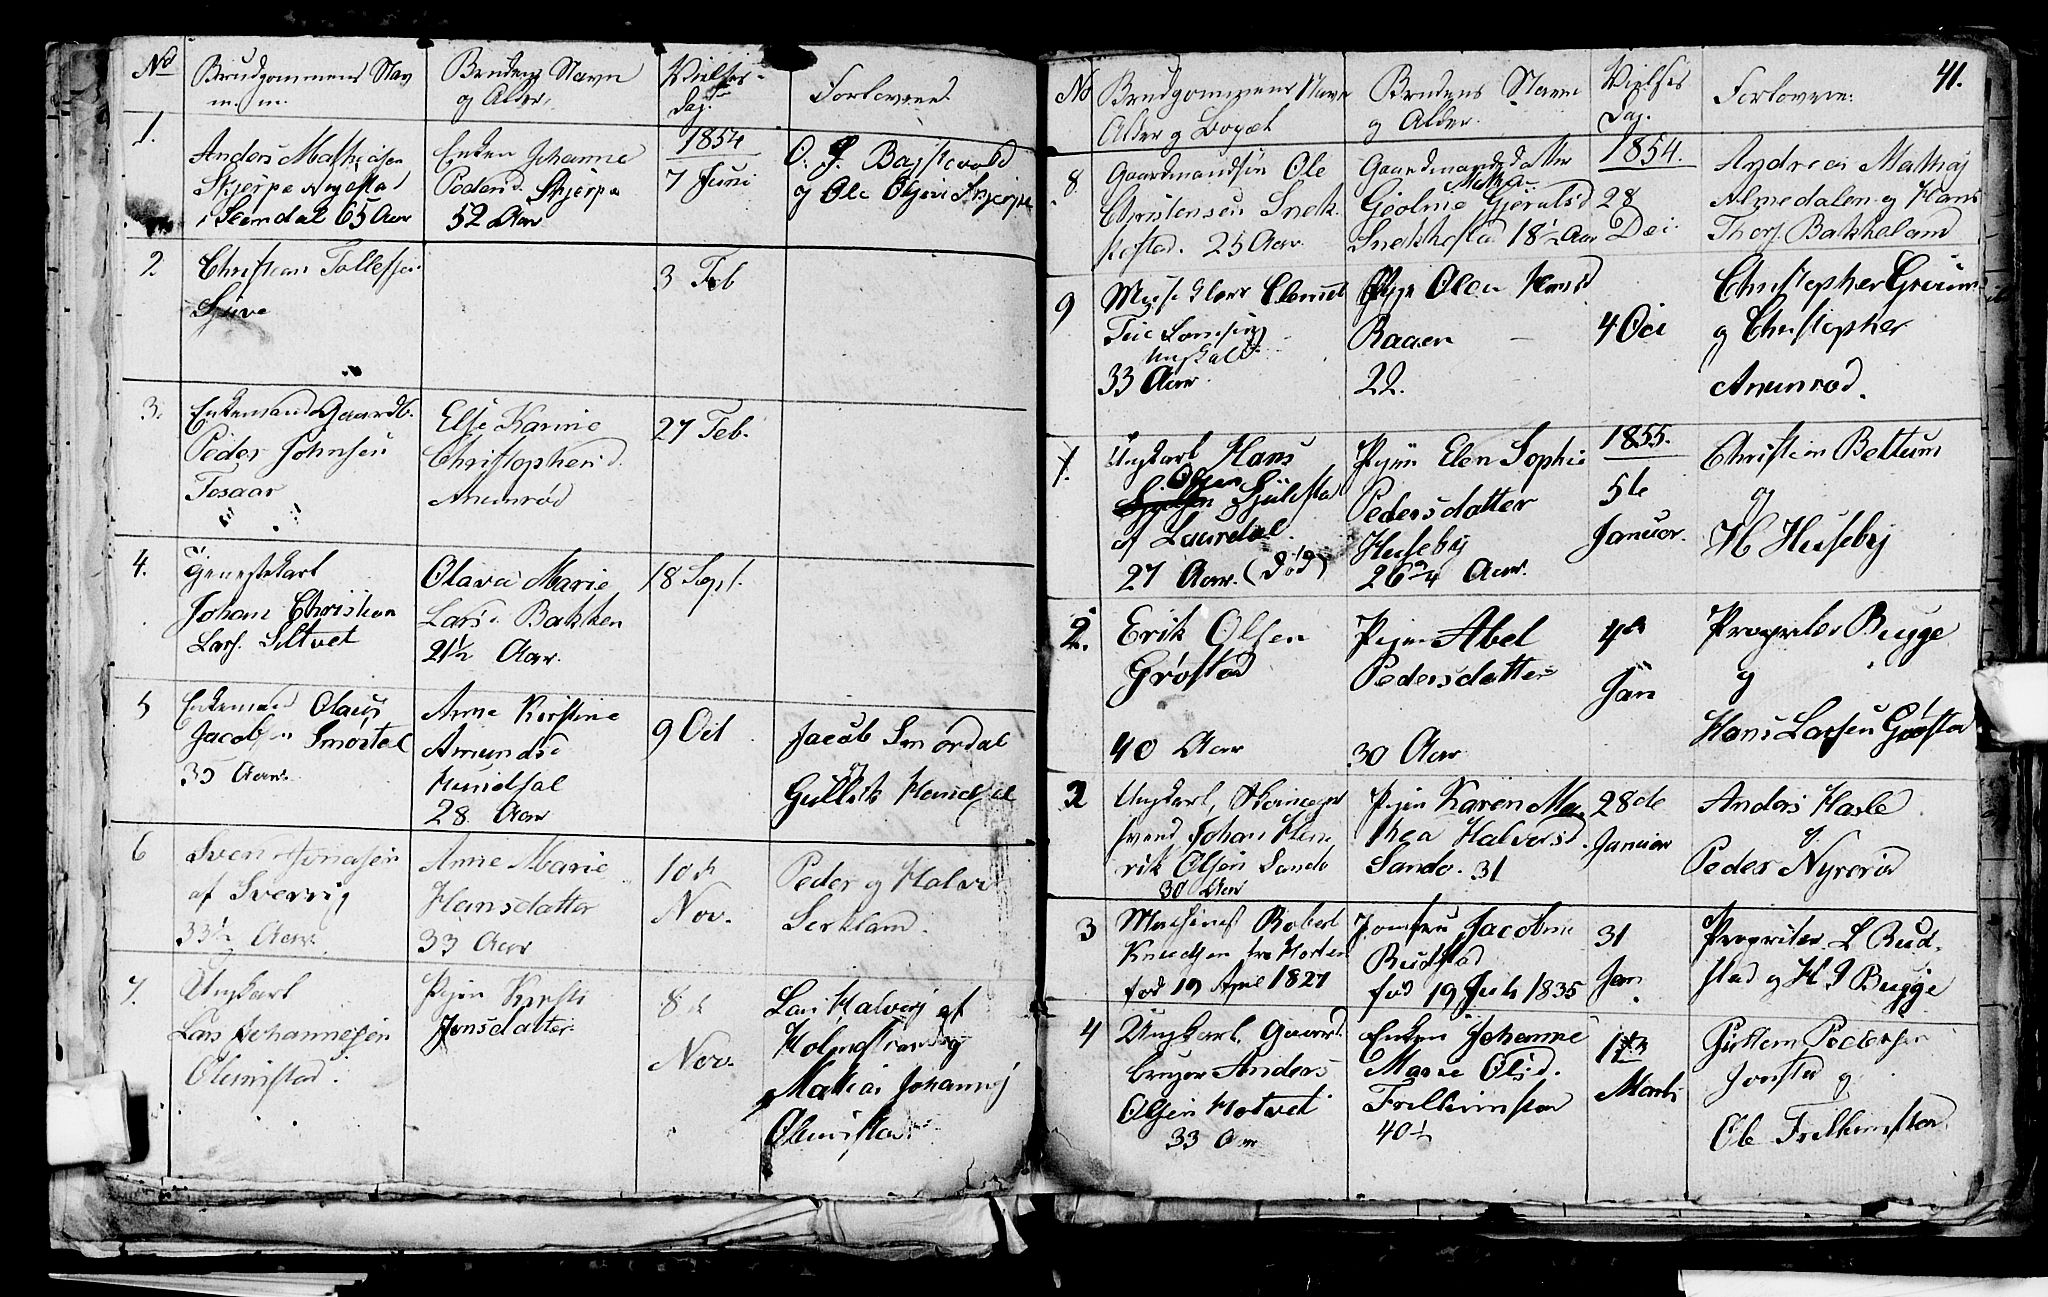 No
Brudgommens Navn
m. m.
Brudens Navn
og Alder,
Vielses-
Dag.
Forlovere.
1.
Anders Mathisen
Skjerpe
i Slemdal 65 Aar
Enken Johanne
Pedersd. Skjerpe
52 Aar
1854
7 Juni
og Ole Olsen Skjerpe
2
Christian Tollefsen
3 Feb
3.
Enkemand Gaardb.
Peder Johnsen
Fosaar
Else Karine
Christophersd.
Anunrød
27 Feb.
4.
Tjenestekarl
Johan Christian
Lars. Siltvet
Olava Marie
Larsd. Bakken
21½ Aar.
18 Sept.
5
Enkemand Olaus
Jacobsen Smørdal
35 Aar.
Anne Kirstine
Amundsd
28 Aar
9 Oct
Jacob Smørdal
og
6
Sven Jonasen
af Sverrig
33½ Aar.
Anne Marie
Hansdatter
33 Aar
10de
Nov.
Peder og Halvor
7.
Ungkarl
Lars Johannesen
Pigen Kirsti
Jensdatter
8de
Nov.
Lars Halvors. af
Holmestrand og
Mathias Johannes
41.
No
Brudgommens Navn
Alder og Bopæl
Brudens Navn
og Alder.
Vielses
Dag.
Forlovere.
8.
Gaardmandsøn Ole
Christensen Snek-
kestad. 25 Aar
Gaardmandsdatter
Snekkestad 18½ Aar
1854.
28
Dec.
Andreas Mathias
Almedalen og Hans
Thors. Bakkeland
9
33 Aar.
Pige Olea Hansd
Raaen
22.
4 Oct
Christopher
og Christopher
Anunrød.
1.
Ungkarl Hans
Olsen
af Laurdal.
27 Aar. (død)
Pigen Elen Sophie
Pedersdatter
Huseby
26 ¾ Aar.
1855.
5te
Januar.
Christian Bettum
og
H Huseby
2.
Erik Olsen
Grøstad
40 Aar
Pigen Abel
Pedersdatter
30 Aar
4de
Jan
Propritær Bugge
og
Hans Larsen Grøstad
2
Ungkarl, Skomager
svend Johan Hen
rik Olsen Sando
30 Aar
Pigen Karen Ma
thea Halvorsd.
Sando. 31
28de
Januar
Anders Hasle
og
Peder Nyrerød
3
Maskinist Robert
Knudsen fra Horten
fød 19 April 1827
Jomfru Jacobine
Rudstad
fød 19 Juli 1835
31
Jan.
Propritær L Rud-
stad og H J Bugge
4
Ungkarl, Gaard-
bruger Anders
Olsen Holtvet
33 Aar
Enken Johanne
Marie Olsd.
40½
1ste
Marts
Guttorm Pedersen
og
Ole